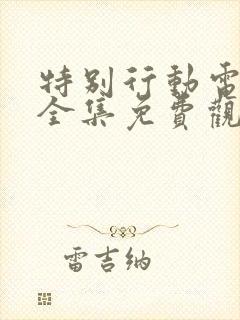 特別行動電
全集免費觀
雷吉納